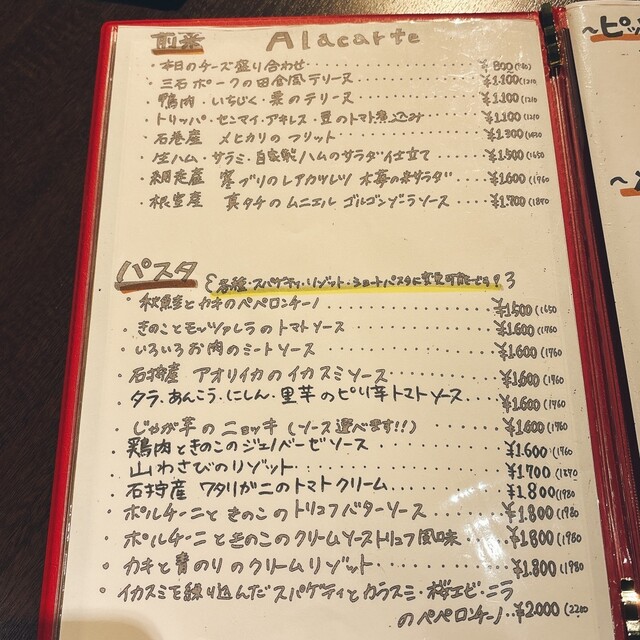 前菜 Alacarte
・本日のチーズ盛り合わせ ¥800(880)
・三石ポークの田舎風テリーヌ ¥1.100(1210
・鴨肉・いちじく・栗のテリーヌ ¥1.100(1210
・トリッパ・センマイ・アキレス・豆のトマト煮込み ¥1.100(1210
・石巻産 メヒカリのフリット ¥1.300(1430
・生ハム・サラミ・自家製ハムのサラダ仕立て ¥1.500(1650
・網走産 寒ブリのレアカツレツ 木苺のサラダ ¥1.600(1760
・根室産 真タチのムニエル ゴルゴンゾーラソース ¥1.700(1870
パスタ {各種・スパゲティ・リゾット・ショートパスタに変更可能です!}
・秋鮭とカキのペペロンチーノ ¥1.500(1650
・きのことモッツァレラのトマトソース ¥1.600(1760
・いろいろお肉のミートソース ¥1.600(1760
・石狩産 アオリイカのイカスミソース ¥1.600(1760
・タラ・あんこう・にしん・里芋のピリ辛トマトソース ¥1.600(1760
・じゃが芋のニョッキ(ソース選べます!!) ¥1.600(1760
・鶏肉ときのこのジェノベーゼソース ¥1.600(1760
・山わさびのリゾット ¥1.700(1870
・石狩産 ワタリガニのトマトクリーム ¥1.800(1980
・ポルチーニときのこのトリュフバターソース ¥1.800(1980
・ポルチーニときのこのクリームソーストリュフ風味 ¥1.800(1980
・カキと青のりのクリームリゾット ¥1.800(1980
・イカスミを練り込んだスパゲティとカラスミ・桜エビ・ニラ
のペペロンチーノ ¥2.000(2200
〜ピッ
〜